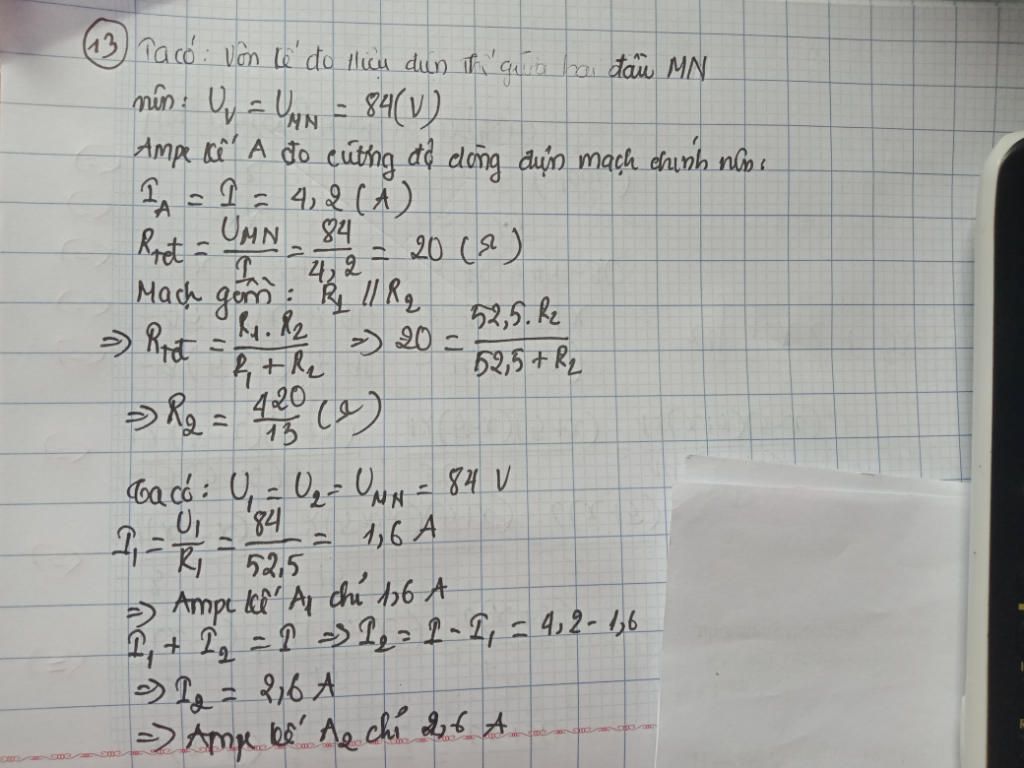 13 Ta có: Vôn kế đo hiệu điện thế giữa hai đầu MN
nên: U_V = U_MN = 84(V)
Ampe kế A đo cường độ dòng điện mạch chính nên:
I_A = I = 4,2 (A)
R_tđ = U_MN / I = 84 / 4,2 = 20 (Ω)
Mạch gồm: R_1 // R_2
=> R_tđ = R_1 . R_2 / R_1 + R_2 => 20 = 52,5 . R_2 / 52,5 + R_2
=> R_2 = 420 / 13 (Ω)
Ta có: U_1 = U_2 = U_MN = 84 V
I_1 = U_1 / R_1 = 84 / 52,5 = 1,6 A
=> Ampe kế A_1 chỉ 1,6 A
I_1 + I_2 = I => I_2 = I - I_1 = 4,2 - 1,6
=> I_2 = 2,6 A
=> Ampe kế A_2 chỉ 2,6 A